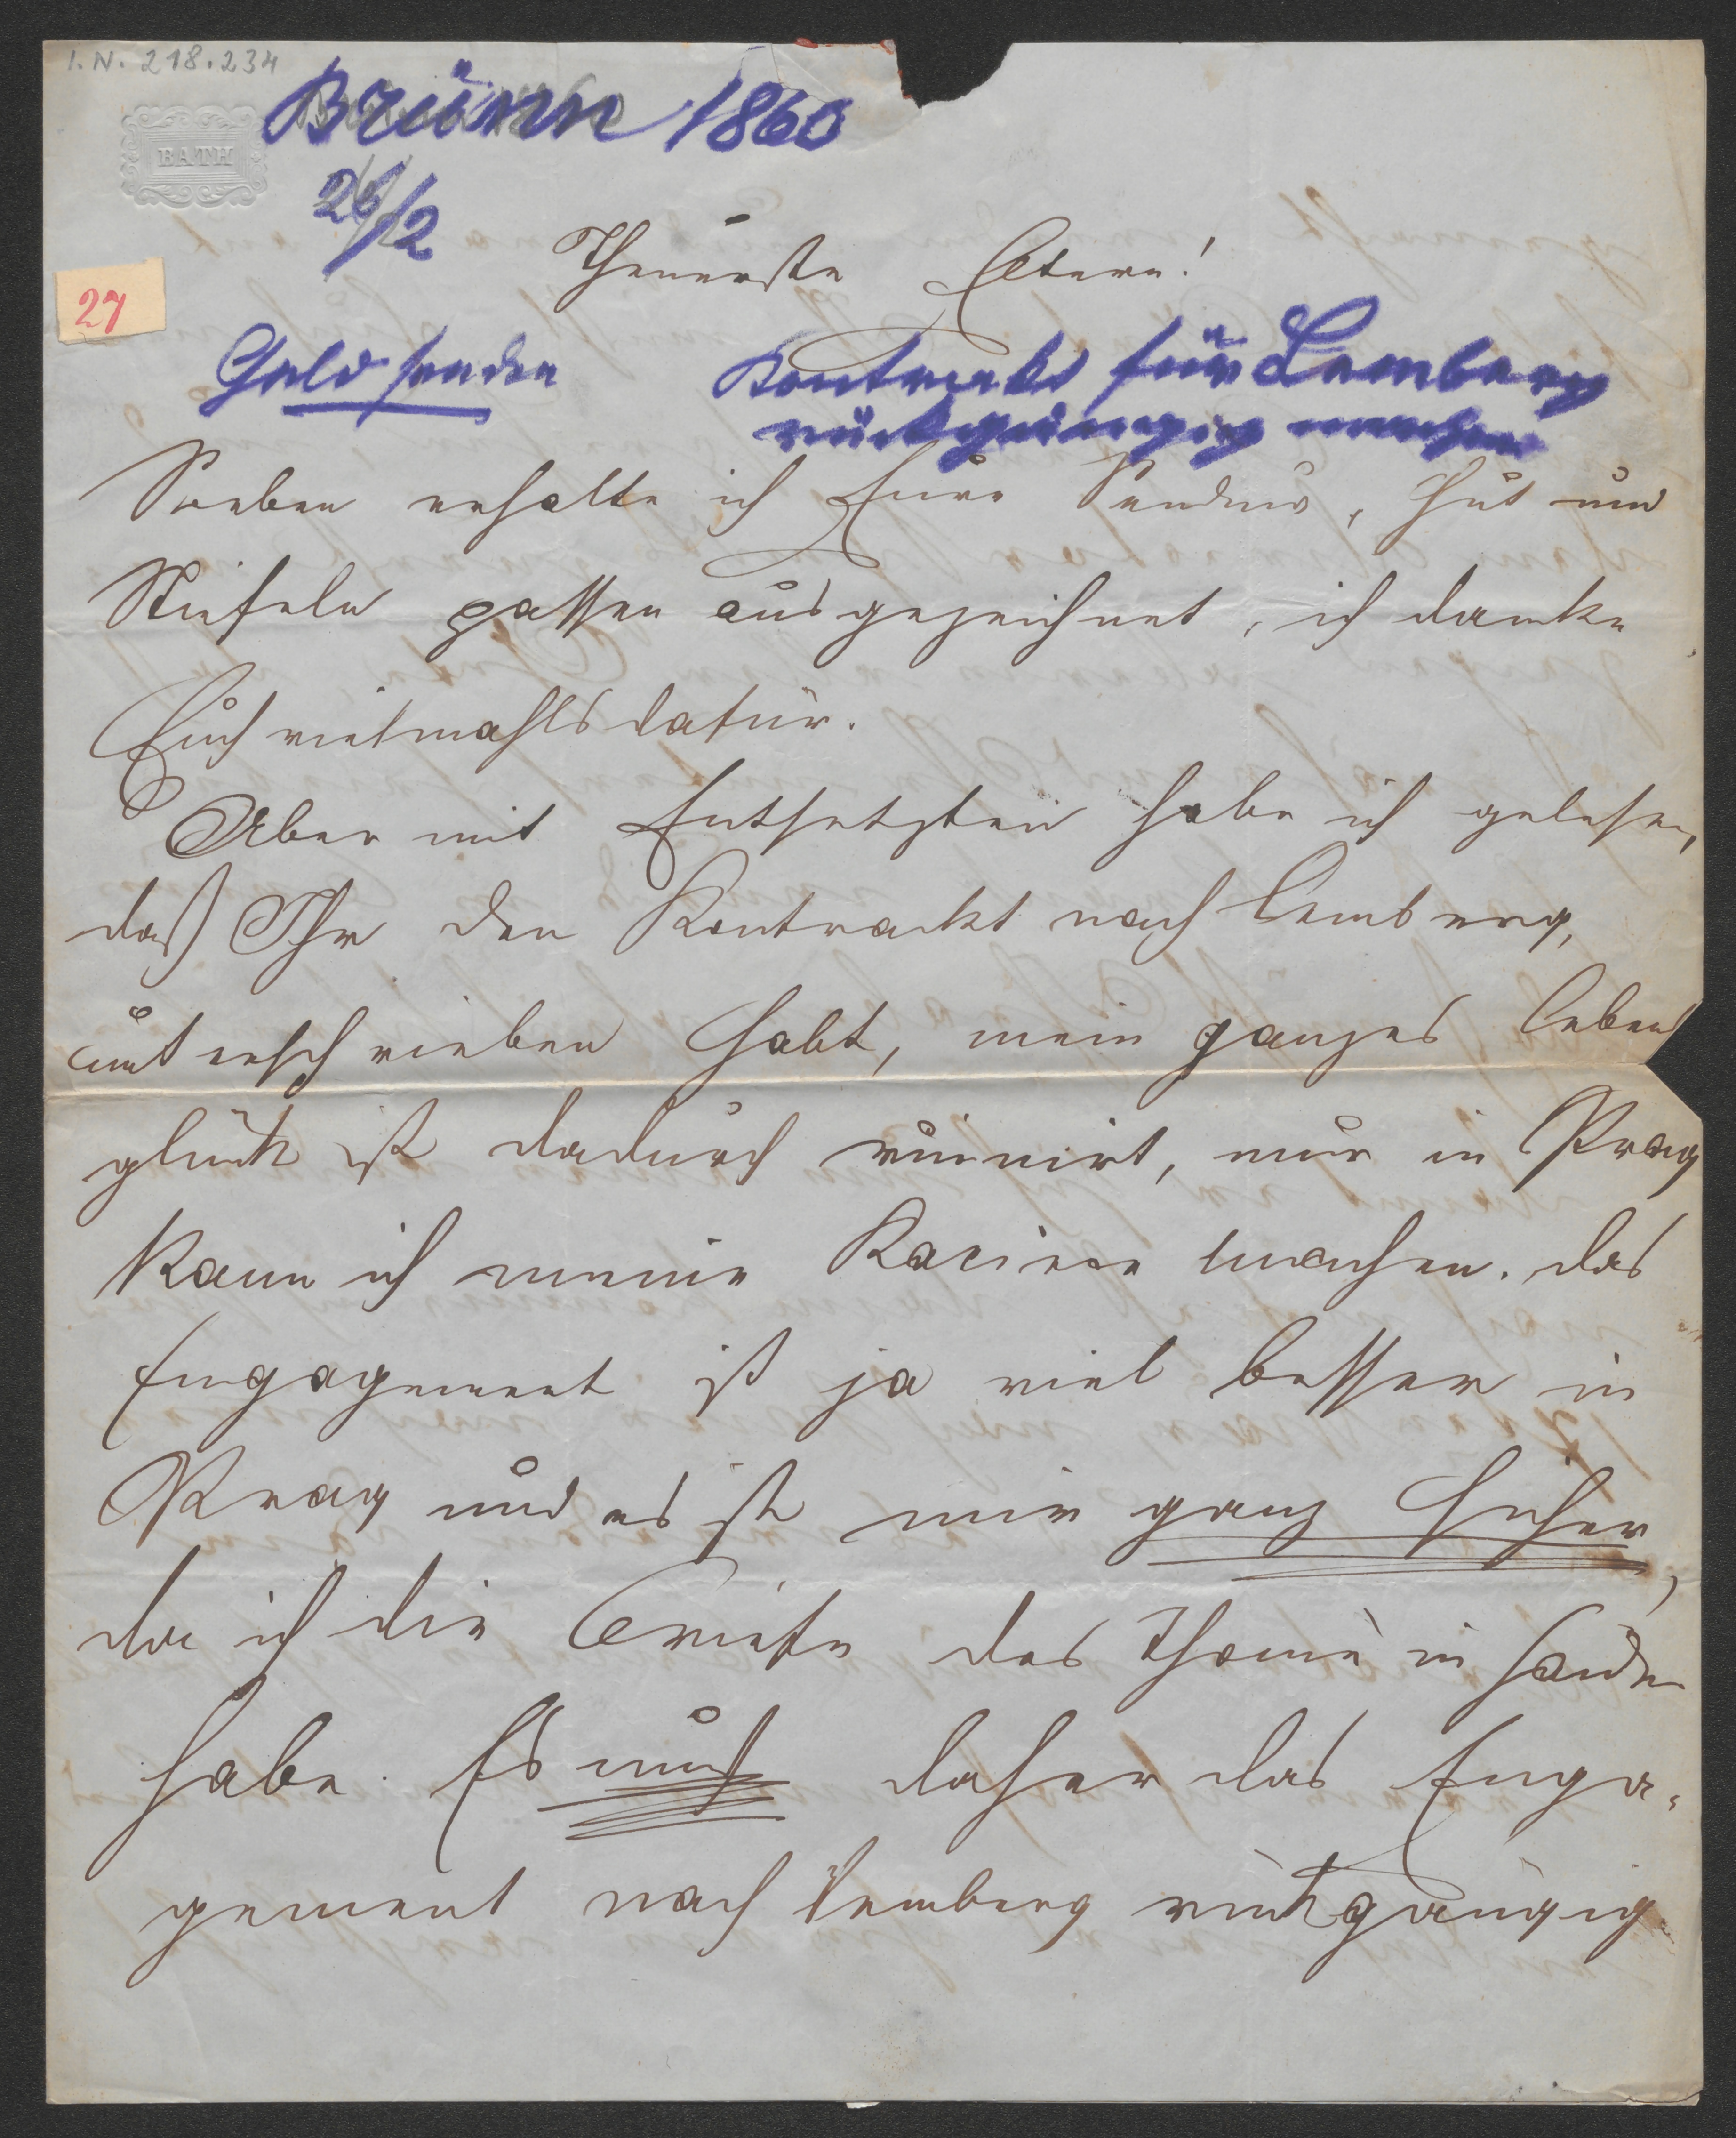 I.N. 218.234
BATH
Brünn 1860
26/2
Theuerste Eltern!
27
Geld senden
Kontrakt für Lemberg
rückgängig machen
Soeben erhalte ich Eure Sendung, Hut und
Stiefeln passen ausgezeichnet, ich danke
Euch vielmahls dafür.
Aber mit Entsetzten habe ich gelesen,
daß Ihr den Kontrackt nach Lemberg,
unterschrieben habt, mein ganzes Lebens
glück ist dadurch ruinirt, nur in Prag
kann ich meine Kariere machen. das
Engagement ist ja viel besser in
Prag und es ist mir ganz sicher,
da ich die Briefe des Thomé in Händen
habe. Es muß daher das Enga-
gement nach Lemberg rückgängig